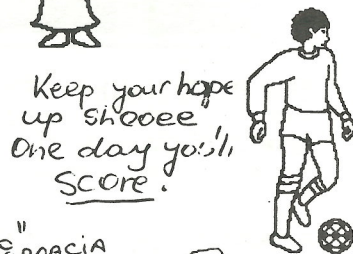 Keep your hope
up shooee
One day you'll
SCORE.
"
GARCIA